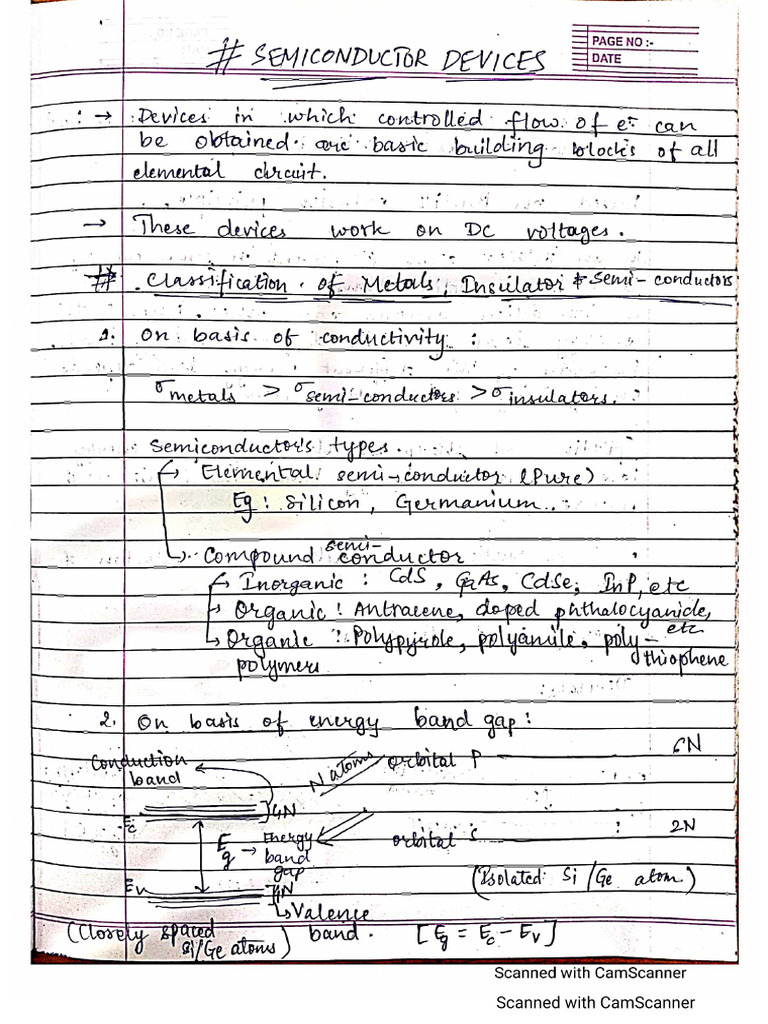 # SEMICONDUCTOR DEVICES
PAGE NO :-
DATE
:→ Devices in which controlled flow of e⁻ can
be obtained are basic building blocks of all
elemental circuit.
→ These devices work on DC voltages.
# Classification of Metals, Insulator & Semi-conductors
1. On basis of conductivity :
σmetals > σsemi-conductors > σinsulators.
Semiconductor's types.
→ Elemental semi-conductor (Pure)
Eg: Silicon, Germanium..
→ Compound semi-conductor
→ Inorganic : CdS, GaAs, CdSe, InP, etc
→ Organic : Antracene, doped phthalocyanide, etc
→ Organic : Polypyrole, polyaniule, poly-
polymers thiophene
2. On basis of energy band gap :
Conduction band
N atoms
orbital P 6N
]4N
Ec
Eg → Energy band gap
orbital S : 2N
Ev ]4N
(Isolated Si/Ge atom)
↳ Valence band.
(Closely spaced Si/Ge atoms)
[Eg = Ec - Ev]
Scanned with CamScanner
Scanned with CamScanner